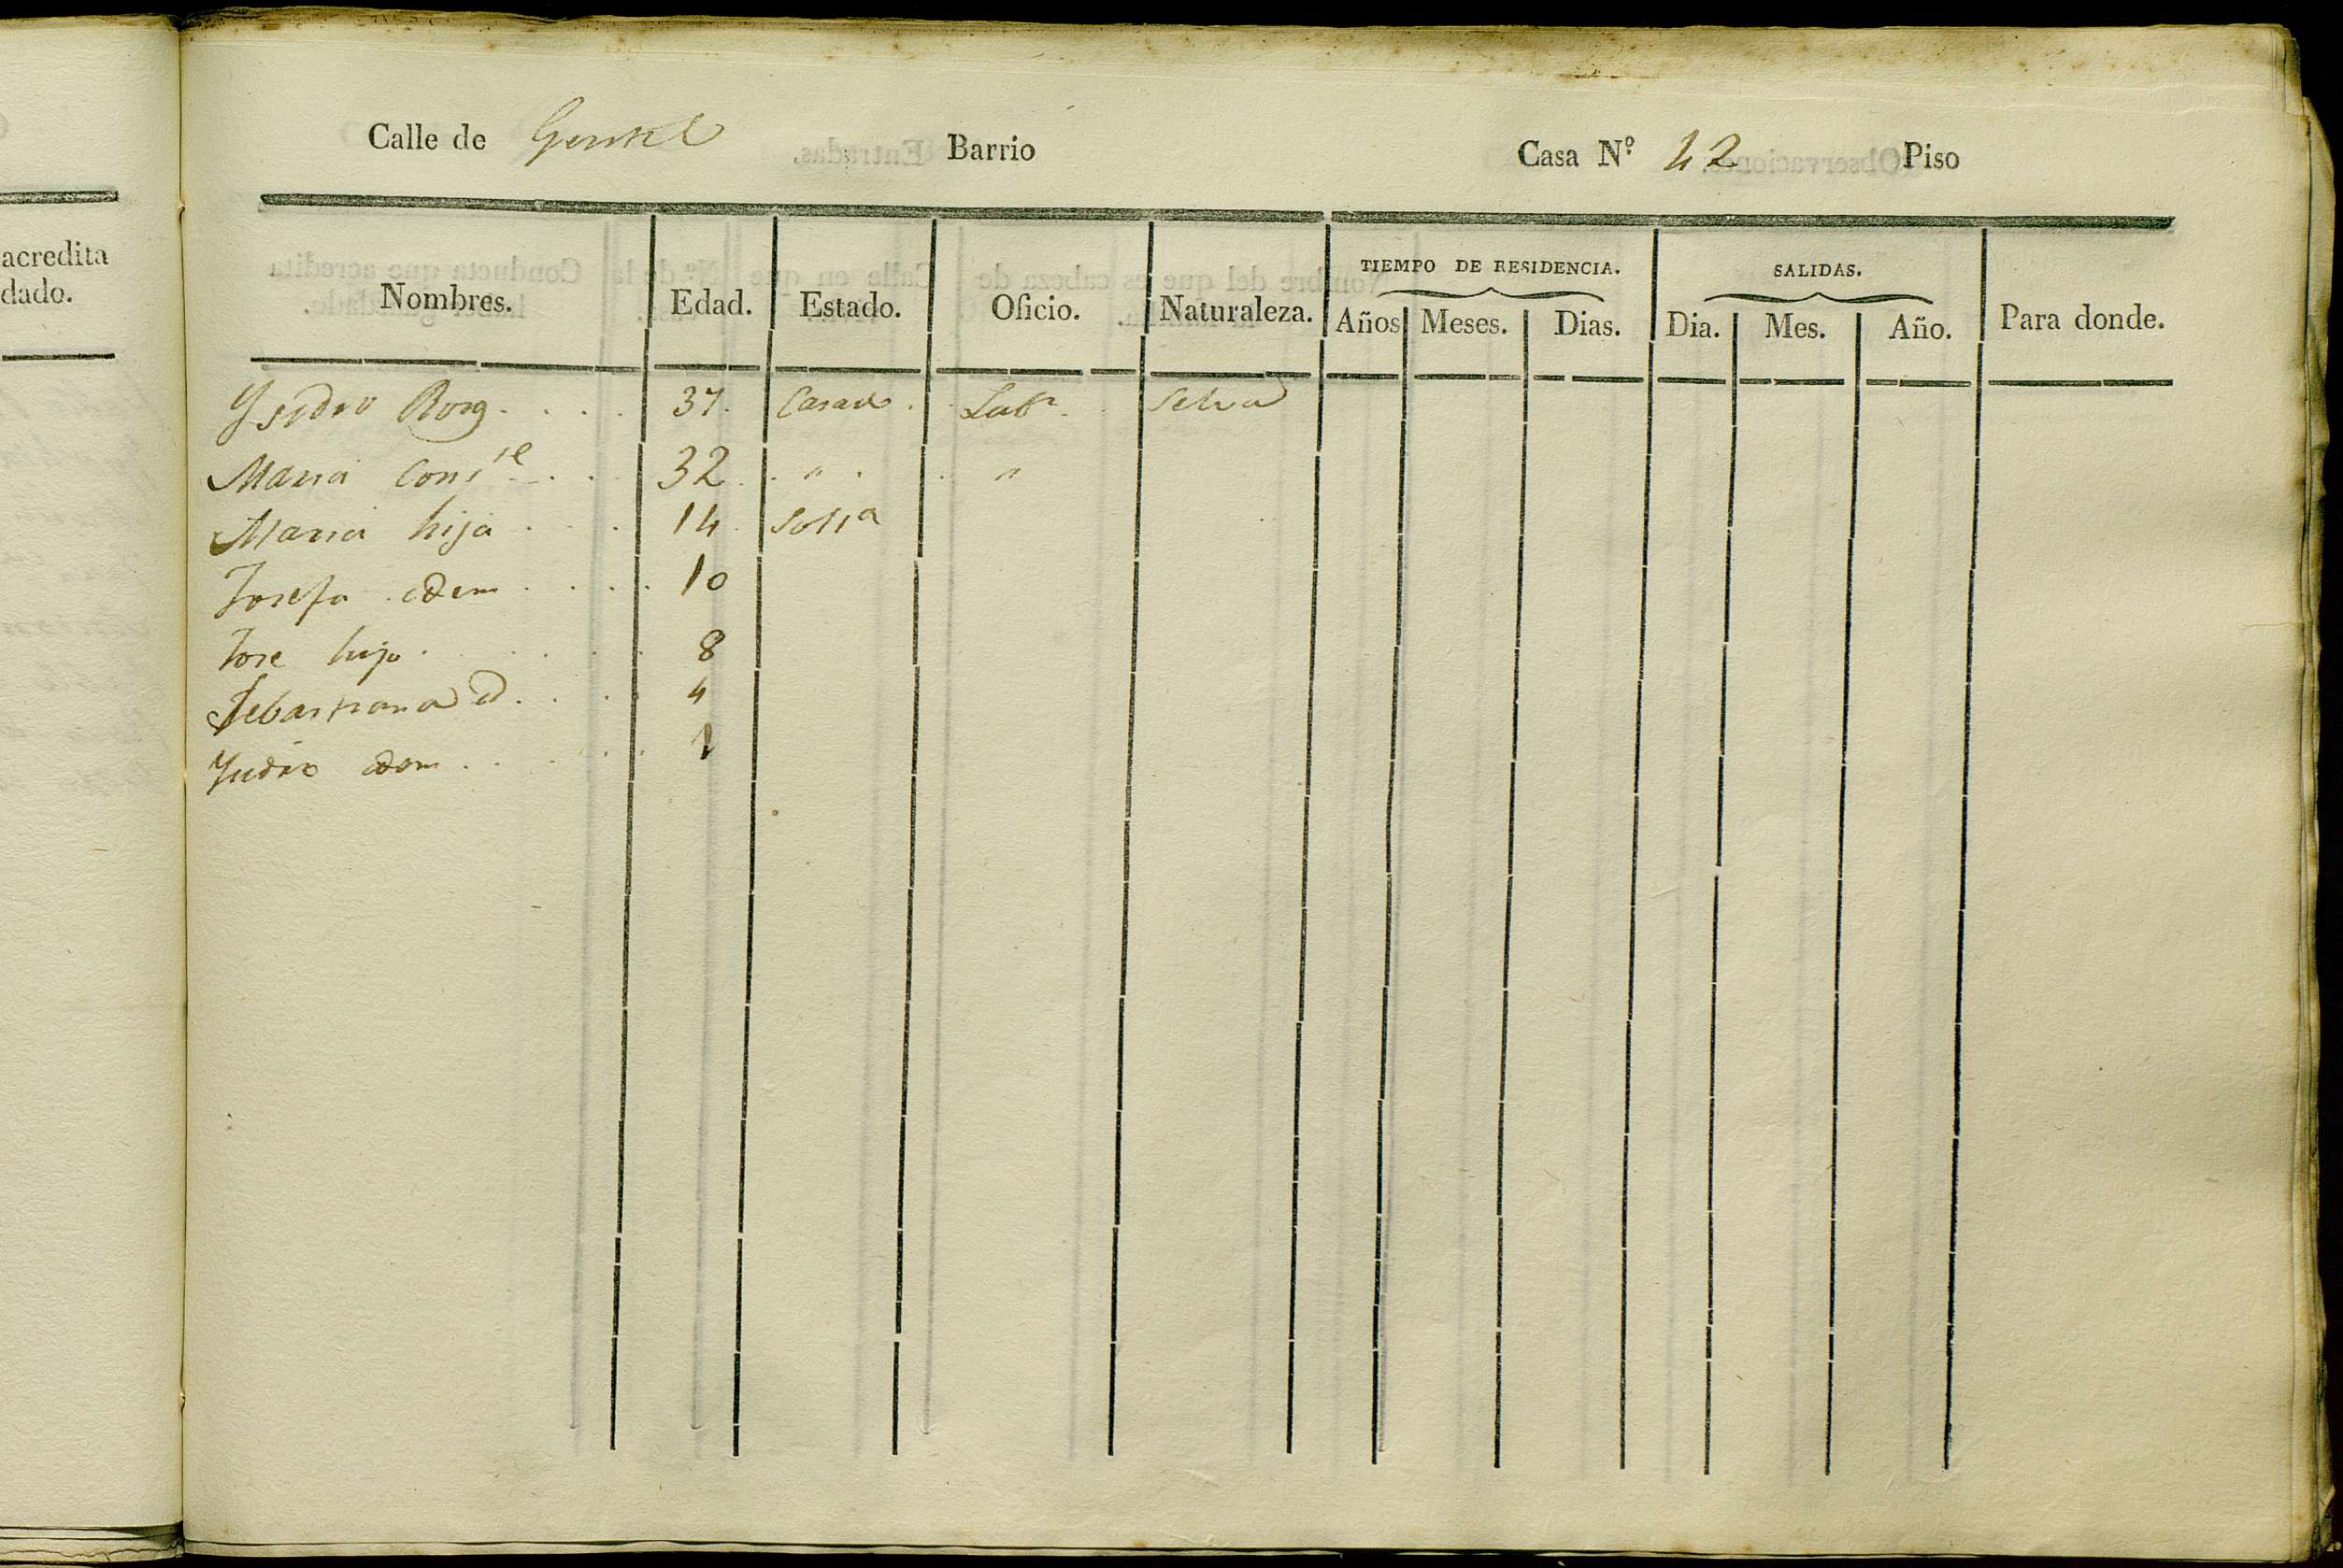 acredita
dado.
Calle de Barrio Casa Nº 42 Piso
Nombres. Edad. Estado. Oficio. Naturaleza. TIEMPO DE RESIDENCIA. Años Meses. Dias. SALIDAS. Dia. Mes. Año. Para donde.
Ysidro Roig . . . . 37. Casado . . Labr. . Selva
Maria Consте . . . 32 . . " . . "
Maria hija . . . 14 . Soltra
Josefa idem . . . . 10
Jose hijo . . . . 8
Sebastiana id . . . 4
idem . . . . 1